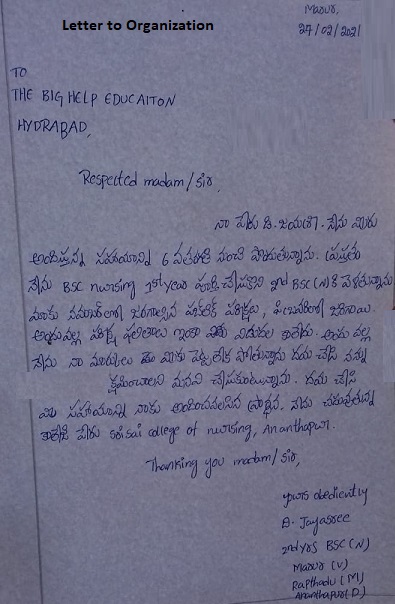 Letter to Organization
Marur,
27/02/2021
TO
THE BIG HELP EDUCAITON
HYDRABAD,
Respected madam/sir,
నా పేరు డి. జయశ్రీ. నేను మీరు
అందిస్తున్న సహాయాన్ని 6 వతరగతి నుంచి పొందుతున్నాను. ప్రస్తుతం
నేను BSC nursing 1st year పూర్తి చేసుకొని 2nd BSC(N) కి వెళ్తున్నాను
మాకు నవంబర్‌లో జరగాల్సిన పబ్లిక్ పరీక్షలు, ఫిబ్రవరిలో జరిగాయి.
అందువల్ల పరీక్ష ఫలితాలు ఇంకా విడుదల కాలేదు. అందు వల్ల
నేను నా మార్కులు మీకు పెట్టలేక పోతున్నాను దయ చేసి నన్ను
క్షమించాలని మనవి చేసుకుంటున్నాను. దయ చేసి
మీ సహాయాన్ని నాకు అందించవలసిన ప్రార్థన. నేను చదువుతున్న
కాలేజి పేరు srisai college of nursing, Ananthapur.
Thanking you madam/sir,
yours obediently
D. Jayasree
2nd yrs BSC (N)
Marur (V)
Rapthadu (M)
Ananthapur (D)